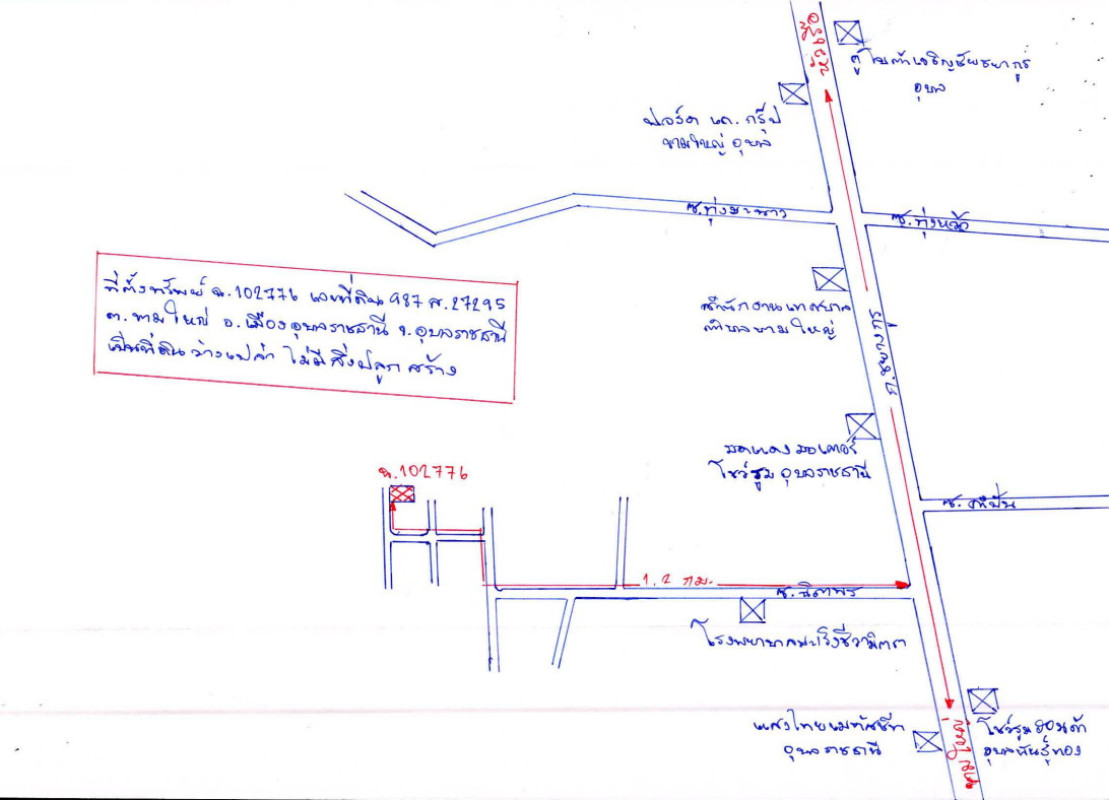 หัวเรือ
ตู้โยต้าเจริญชัยชยางกูร
อุบล
ฟอร์ด เค. กรุ๊ป
ขามใหญ่ อุบล
ซ.ทุ่งมะนาว
ซ.ทุ่งหว้า
ที่ตั้งทรัพย์ ฉ.102776 เลขที่ดิน 987 ส.27295
ต.ขามใหญ่ อ.เมืองอุบลราชธานี จ.อุบลราชธานี
เป็นที่ดินว่างเปล่า ไม่มีสิ่งปลูกสร้าง
สำนักงานเทศบาล
ตำบลขามใหญ่
ถ.ชยางกูร
มดแดง มอเตอร์
โชว์รูม อุบลราชธานี
ฉ.102776
1.2 กม.
ซ.ธิดาพร
โรงพยาบาลมะเร็งชีวามิตรา
แสงไทยเมทัลชีท
อุบลราชธานี
โชว์รูมฮอนด้า
อุบลพันธุ์ทอง